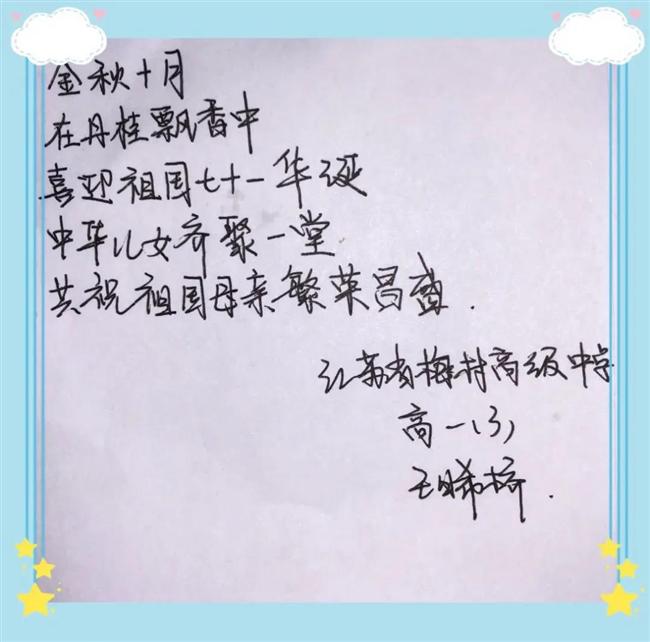 金秋十月
在丹桂飘香中
喜迎祖国七十一华诞
中华儿女齐聚一堂
共祝祖国母亲繁荣昌盛.
江苏省梅村高级中学
高一(3)
王晞